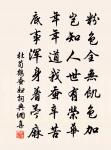 粉色全無飢色加
豈知人世有榮華
年年道我蠶辛苦
底事渾身着苧麻
杜荀鶴蠶婦